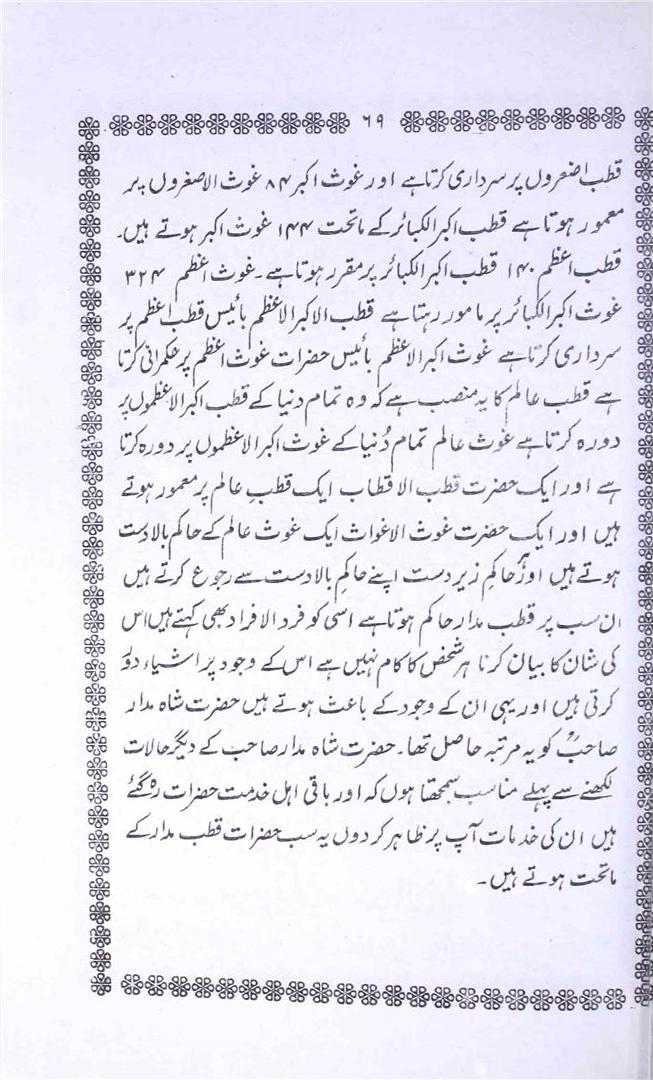 ۶۹
قطب اضعروں پر سرداری کرتا ہے اور غوث اکبر ۸۴ غوث الاصغروں پر
معمور ہوتا ہے قطب اکبر الکبائر کے ماتحت ۱۴۴ غوث اکبر ہوتے ہیں۔
قطب اعظم ۱۴۰ قطب اکبر الکبائر پر مقرر ہوتا ہے۔ غوث اعظم ۳۲۴
غوث اکبر الکبائر پر مامور رہتا ہے قطب الاکبر الاعظم بائیس قطب اعظم پر
سرداری کرتا ہے غوث اکبر الاعظم بائیس حضرات غوث اعظم پر حکمرانی کرتا
ہے قطب عالم کا یہ منصب ہے کہ وہ تمام دنیا کے قطب اکبر الاعظموں پر
دورہ کرتا ہے غوث عالم تمام دُنیا کے غوث اکبر الاعظموں پر دورہ کرتا
ہے اور ایک حضرت قطب الاقطاب ایک قطب عالم پر معمور ہوتے
ہیں اور ایک حضرت غوث الاغواث ایک غوث عالم کے حاکم بالادست
ہوتے ہیں اور ہر حاکم زیر دست اپنے حاکم بالادست سے رجوع کرتے ہیں
ان سب پر قطب مدار حاکم ہوتا ہے اسی کو فرد الافراد بھی کہتے ہیں اس
کی شان کا بیان کرنا ہر شخص کا کام نہیں ہے اس کے وجود پر اشیاء دورُ
کرتی ہیں اور یہی ان کے وجود کے باعث ہوتے ہیں حضرت شاہ مدار
صاحبؒ کو یہ مرتبہ حاصل تھا۔ حضرت شاہ مدار صاحب کے دیگر حالات
لکھنے سے پہلے مناسب سمجھتا ہوں کہ اور باقی اہل خدمت حضرات رہ گئے
ہیں ان کی خدمات آپ پر ظاہر کردوں یہ سب حضرات قطب مدار کے
ماتحت ہوتے ہیں۔